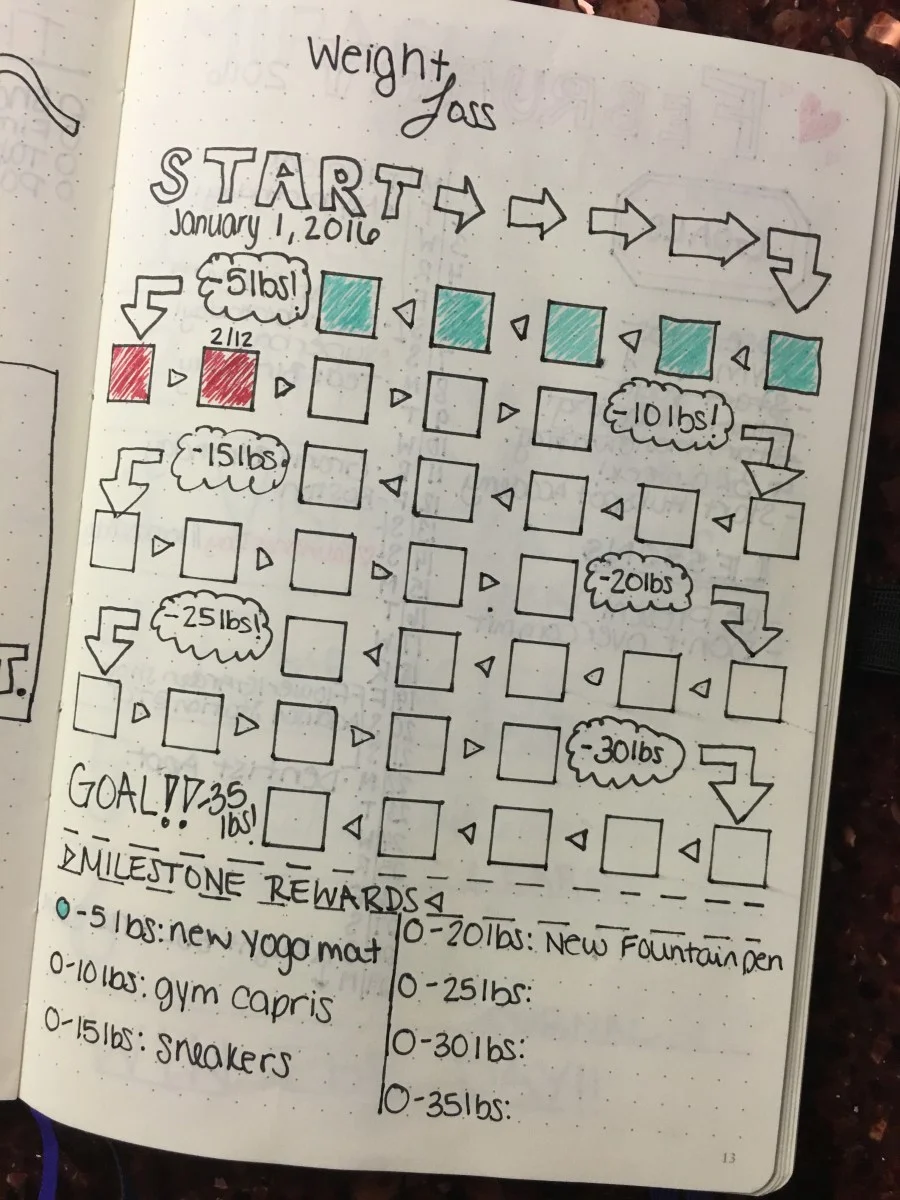 Weight
Loss
START
January 1, 2016
-5lbs!
2/12
-10lbs!
-15lbs.
-20lbs
-25lbs!
-30lbs
GOAL!! -35
lbs!
MILESTONE REWARDS
-5 lbs: new yoga mat
-10lbs: gym capris
-15lbs: sneakers
-20lbs: New Fountain pen
-25lbs:
-30lbs:
-35lbs:
13